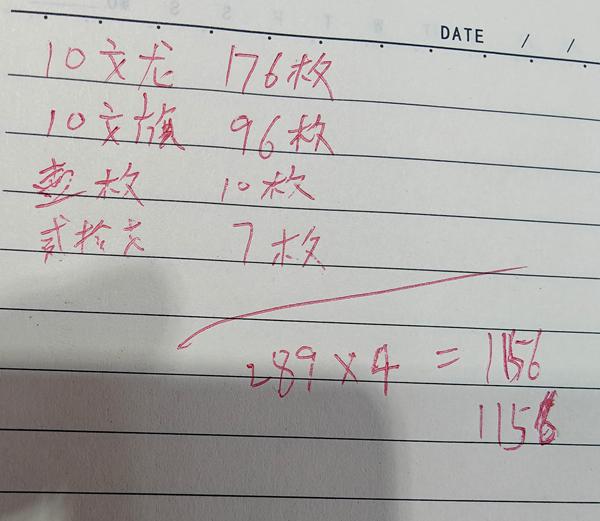 DATE / /
10文龙 176枚
10文旗 96枚
枚 10枚
贰拾文 7枚
289×4=1156
1156